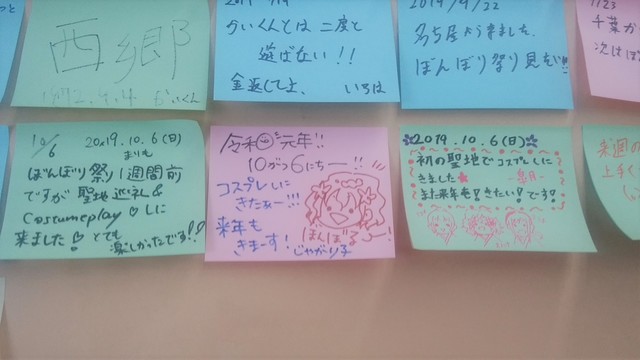 西郷
かいくんとは二度と
遊ばない!!
金返してよ、 いろは
2019/9/22
名古屋から来ました。
ぼんぼり祭り見たい!!
1/23
千葉か
次はぼ
10/6 2019.10.6(日)
まりも
ぼんぼり祭り1週間前
ですが聖地巡礼&
Costumeplay♡しに
来ました♡とても
楽しかったです!!
令和元年!!
10がつ6にちー!!
コスプレしに
きたぁー!!!
来年も
きまーす!
ぼんぼるー!
じゃがり子
2019.10.6(日)
初の聖地でコスプレしに
きました★
また来年も!きたい!です!
来週の
上手く